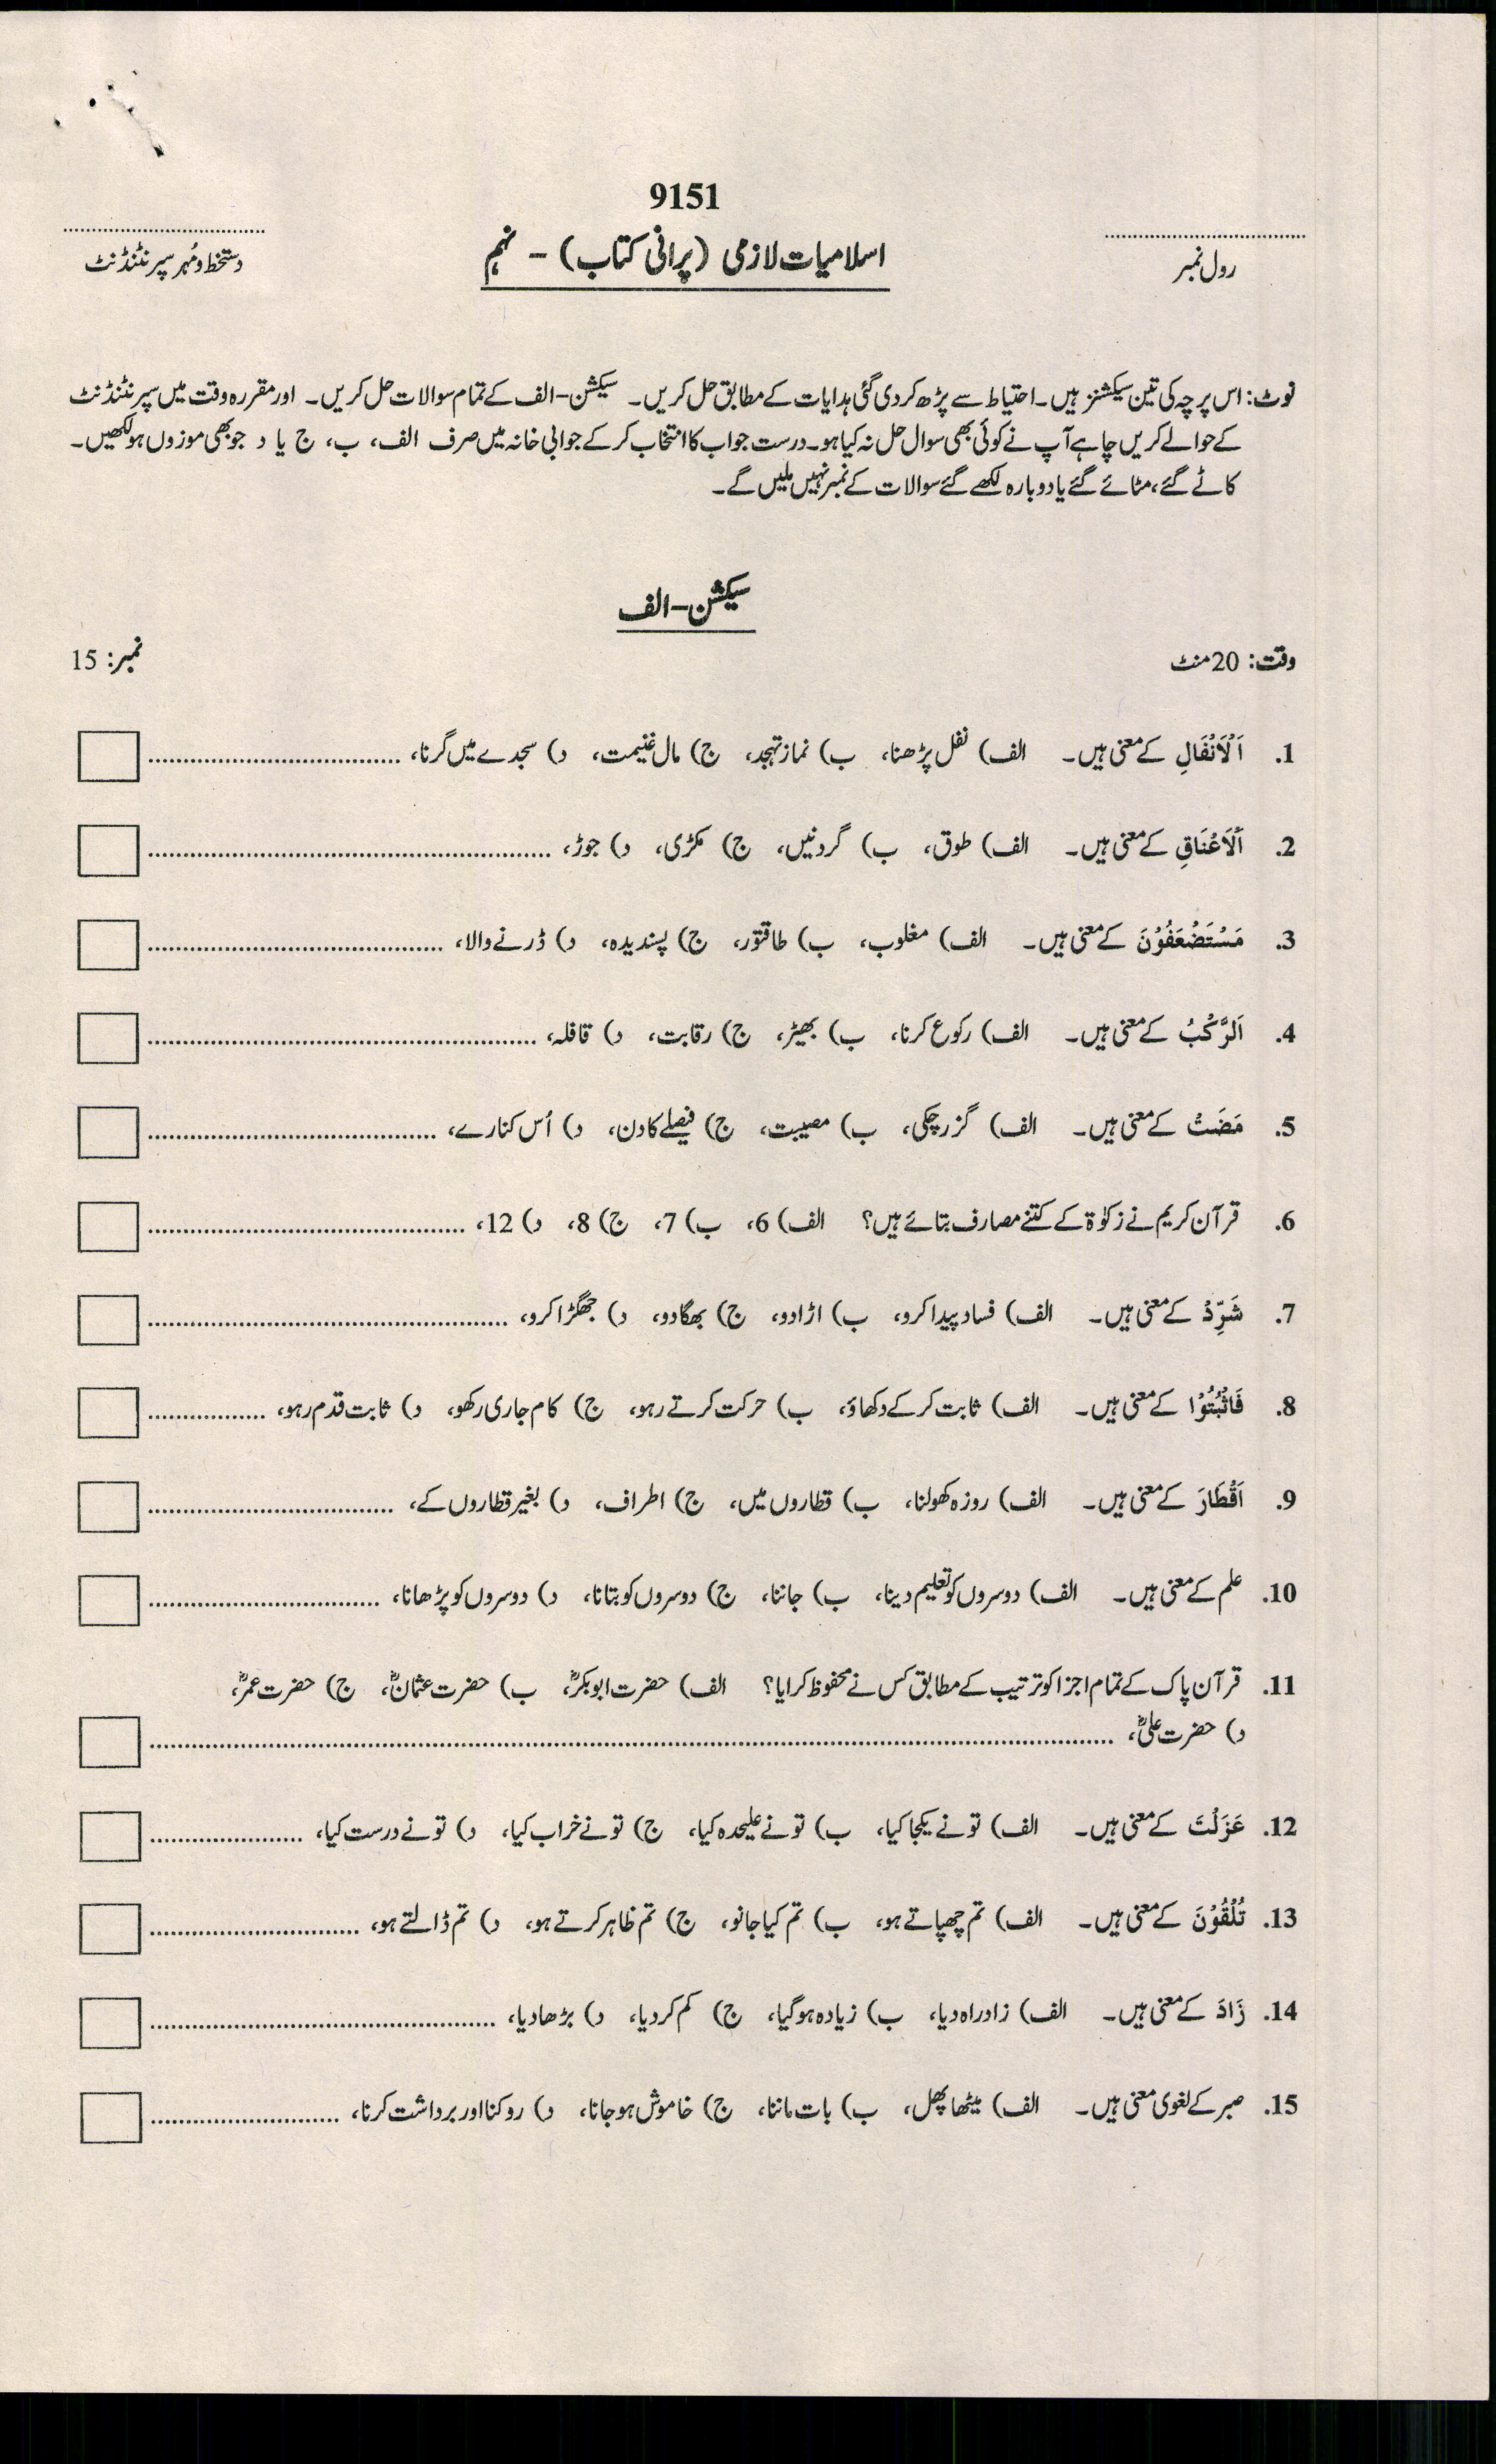 9151
رول نمبر
اسلامیات لازمی (پرانی کتاب) - نہم
دستخط و مُہر سپرنٹنڈنٹ
نوٹ: اس پرچہ کی تین سیکشنز ہیں۔ احتیاط سے پڑھ کر دی گئی ہدایات کے مطابق حل کریں۔ سیکشن-الف کے تمام سوالات حل کریں۔ اور مقررہ وقت میں سپرنٹنڈنٹ
کے حوالے کریں چاہے آپ نے کوئی بھی سوال حل نہ کیا ہو۔ درست جواب کا انتخاب کر کے جوابی خانہ میں صرف الف، ب، ج یا د جو بھی موزوں ہو لکھیں۔
کاٹے گئے، مٹائے گئے یا دوبارہ لکھے گئے سوالات کے نمبر نہیں ملیں گے۔
سیکشن-الف
وقت: 20 منٹ
نمبر: 15
1. اَلْاَنْفَالِ کے معنی ہیں۔ الف) نفل پڑھنا، ب) نماز تہجد، ج) مال غنیمت، د) سجدے میں گرنا،
2. اَلْاَعْنَاقِ کے معنی ہیں۔ الف) طوق، ب) گردنیں، ج) مکڑی، د) جوڑ،
3. مَسْتَضْعَفُوْنَ کے معنی ہیں۔ الف) مغلوب، ب) طاقتور، ج) پسندیدہ، د) ڈرنے والا،
4. اَلرَّكْبُ کے معنی ہیں۔ الف) رکوع کرنا، ب) بھیڑ، ج) رقابت، د) قافلہ،
5. مَضَتْ کے معنی ہیں۔ الف) گزر چکی، ب) مصیبت، ج) فیصلے کا دن، د) اُس کنارے،
6. قرآن کریم نے زکوٰۃ کے کتنے مصارف بتائے ہیں؟ الف) 6، ب) 7، ج) 8، د) 12،
7. شَرِّدْ کے معنی ہیں۔ الف) فساد پیدا کرو، ب) اڑا دو، ج) بھگا دو، د) جھگڑا کرو،
8. فَاثْبُتُوْا کے معنی ہیں۔ الف) ثابت کر کے دکھاؤ، ب) حرکت کرتے رہو، ج) کام جاری رکھو، د) ثابت قدم رہو،
9. اَقْطَارَ کے معنی ہیں۔ الف) روزہ کھولنا، ب) قطاروں میں، ج) اطراف، د) بغیر قطاروں کے،
10. علم کے معنی ہیں۔ الف) دوسروں کو تعلیم دینا، ب) جاننا، ج) دوسروں کو بتانا، د) دوسروں کو پڑھانا،
11. قرآن پاک کے تمام اجزا کو ترتیب کے مطابق کس نے محفوظ کرایا؟ الف) حضرت ابوبکرؓ، ب) حضرت عثمانؓ، ج) حضرت عمرؓ،
د) حضرت علیؓ،
12. عَزَلْتَ کے معنی ہیں۔ الف) تو نے یکجا کیا، ب) تو نے علیحدہ کیا، ج) تو نے خراب کیا، د) تو نے درست کیا،
13. تُلْقُوْنَ کے معنی ہیں۔ الف) تم چھپاتے ہو، ب) تم کیا جانو، ج) تم ظاہر کرتے ہو، د) تم ڈالتے ہو،
14. زَادَ کے معنی ہیں۔ الف) زاد راہ دیا، ب) زیادہ ہو گیا، ج) کم کر دیا، د) بڑھا دیا،
15. صبر کے لغوی معنی ہیں۔ الف) میٹھا پھل، ب) بات ماننا، ج) خاموش ہو جانا، د) روکنا اور برداشت کرنا،